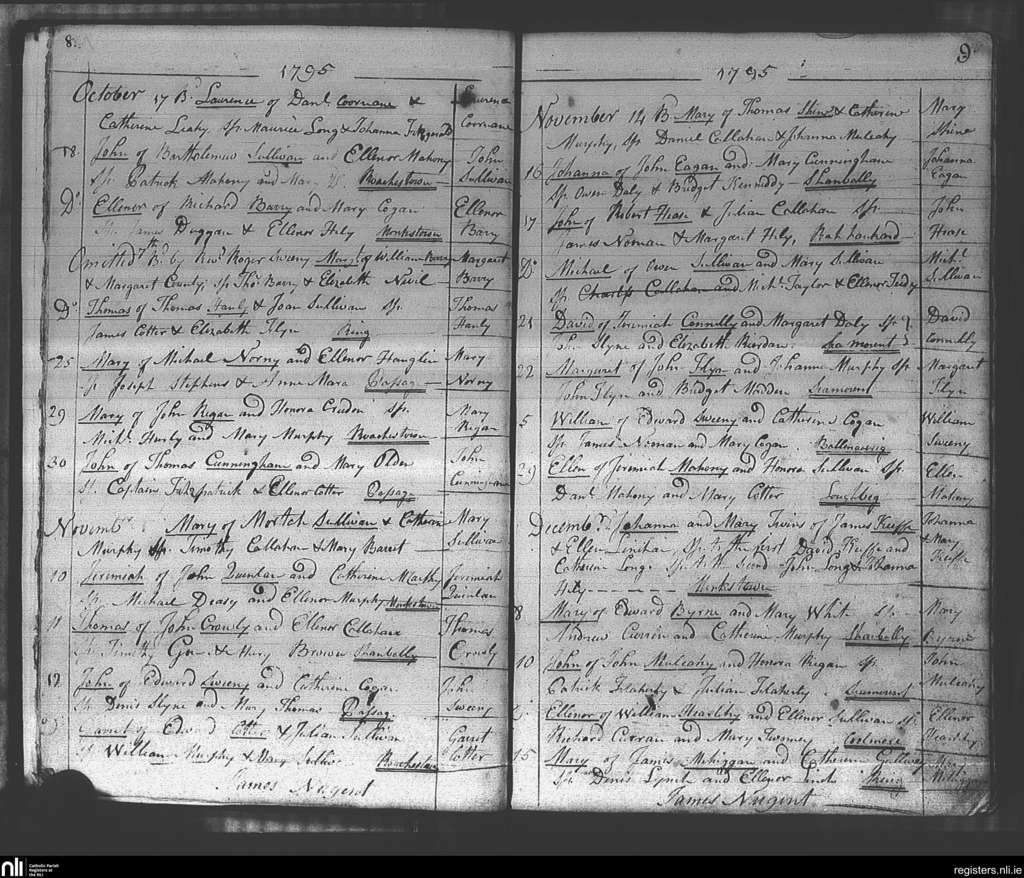 8.
1795
October 17 Bd Laurence of Danl. Coornane &
Laurence
Coornane
Catherine Leahy Sps. Maurice Long & Johanna Fitzgerald
18. John of Bartholemew Sullivan and Ellenor Mahony
John
Sullivan
Sps. Patrick Mahony and Mary Do. Roachestown
Do. Ellenor of Richard Barry and Mary Cogan
Ellenor
Barry
James Duggan & Ellenor Hely Monkstown
Omitted 7th Bd. by Revd. Roger Sweeny Margt. of William Barry
Margaret
Barry
& Margaret County, Sps. Thos. Barry & Elizabeth Nevil
Do. Thomas of Thomas Hanly & Joan Sullivan Sps.
Thomas
Hanly
James Cotter & Elizabeth Flyn Ring
25 Mary of Michael Norny and Ellenor Hanglin
Mary
Norny
Sps. Joseph Stephens & Anne Mara Passag
29 Mary of John Regan and Honora Sps.
Mary
Regan
Michl. Hurly and Mary Murphy Roachestown
30 John of Thomas Cunningham and Mary Olden
John
Cunningham
Sps. Captain Fitzpatrick & Ellenor Cotter Passage
Novembr. Mary of Mortch Sullivan & Catherine
Mary
Sullivan
Murphy Sps. Timothy Callahan & Mary Barret
10 Jeremiah of John Quinlan and Catherine Murphy
Jeremiah
Quinlan
Sps. Michael Deasy and Ellenor Murphy Monkstown
11 Thomas of John Crowly and Ellenor Callahan
Thomas
Crowly
Sps. Timothy & Mary Brown Shanbelly
12 John of Edward Sweeny and Catherine Cogan
John
Sweeny
Sps. Denis Slyne and Mary Thomas Passag
Garret of Edward Cotter & Julian Sullivan
Garret
Cotter
Sps. William Murphy & Mary Roachestown
James Nugent
9
1795
November 14 B Mary of Thomas Shine & Catherine
Mary
Shine
Murphy, Sps Daniel Callahan & Johanna Mulcahy
16 Johanna of John Eagan and Mary Cunningham
Johanna
Eagan
Sps Owen Daly & Bridget Kenniddy Shanbally
17 John of Robert Hease & Julian Callahan Sps.
John
Hease
James Noonan & Margaret Hely, Rahhanhard
Do. Michael of Owen Sullivan and Mary Sullivan
Michl.
Sullivan
Sps. Charles Callahan and Michl. Taylor & Ellenor
21 David of Jeremiah Connelly and Margaret Daly Sps.
David
Connelly
Slyne and Elizabeth Riordan Seamount
22 Margaret of John Flyn and Johanna Murphy Sps.
Margaret
Flyn
John Flyn and Bridget Madden Seamount
5 William of Edward Sweeny and Catherine Cogan
William
Sweeny
Sps. James Noonan and Mary Cogan
29 Ellen of Jeremiah Mahony and Honora Sullivan Sps.
Ellen
Mahony
Danl. Mahony and Mary Cotter Loughbeg
Decembr. Johanna and Mary Twins of James Keeffe
Johanna
& Mary
Keeffe
& Ellen Linihan, Sps. to the first David Keeffe and
Catherine Long. Sps. to the Second John Long & Johanna
Hely - - - - - - Monkstown
8 Mary of Edward Byrne and Mary Whit Sps.
Mary
Byrne
Andrew Curran and Catherine Murphy Shanbelly
10 John of John Mulcahy and Honora Regan Sps.
John
Mulcahy
Patrick Flaherty & Julian Flaherty Seamount
Ellenor of William Heaphy and Ellenor Sullivan Sps.
Ellenor
Heaphy
Richard Curran and Mary Twomey Coolmore
15 Mary of James and Catherine
Sps. Denis Lynch and Ellenor
James Nugent
nli
Catholic Parish
Registers at
the NLI
registers.nli.ie